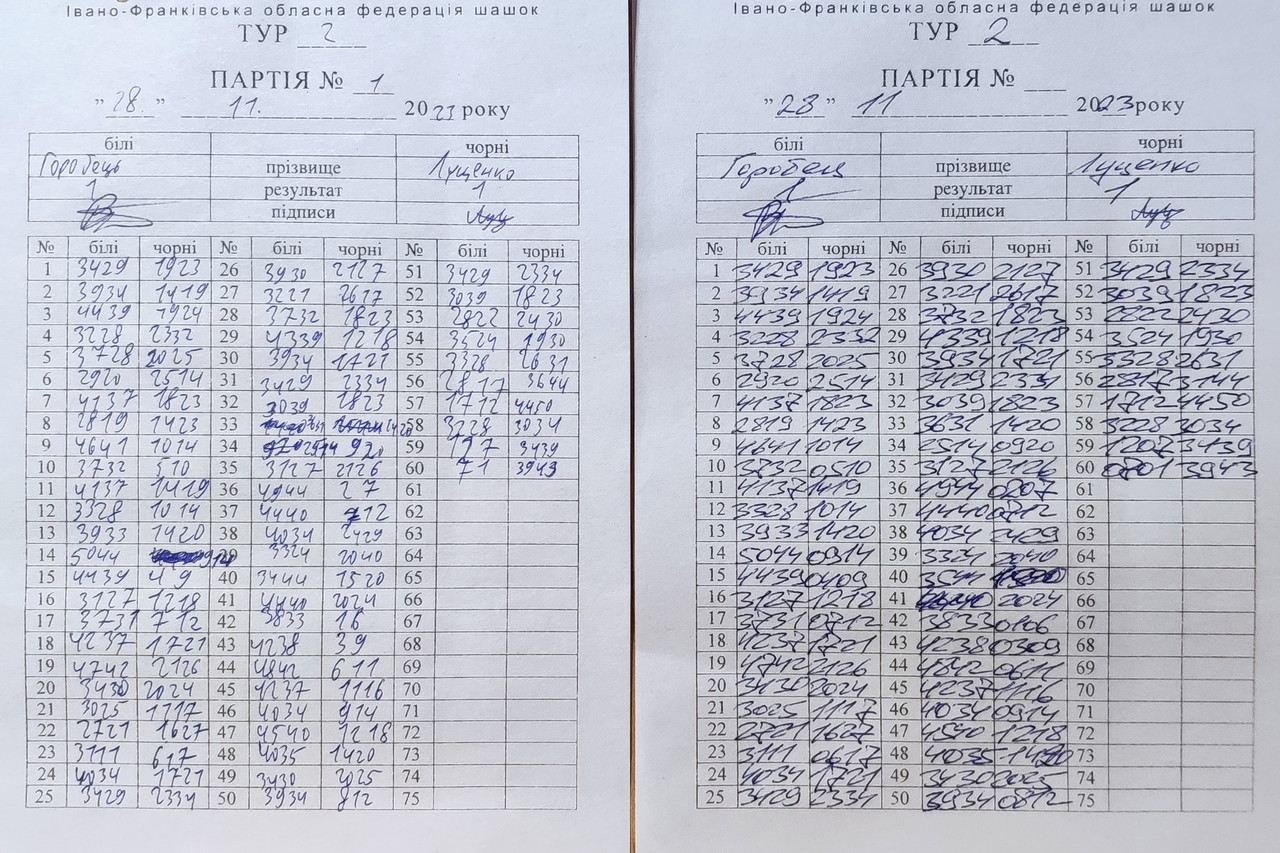 Івано-Франківська обласна федерація шашок
ТУР 2
ПАРТІЯ № 1
"28." 11. 2023 року
білі чорні
Горобець прізвище Лущенко
1 результат 1
підписи
№ білі чорні № білі чорні № білі чорні
1 3429 1923 26 3930 2127 51 3429 2334
2 3934 1419 27 3221 2617 52 3039 1823
3 4439 1924 28 3732 1823 53 2822 2430
4 3228 2332 29 4339 1218 54 3524 1930
5 3728 2025 30 3934 1721 55 3328 2631
6 2920 2514 31 3429 2334 56 2817 3644
7 4137 1823 32 3039 1823 57 1712 4450
8 2819 1423 33 58 3228 3034
9 4641 1014 34 59 127 3439
10 3732 510 35 3127 2126 60 71 3943
11 4137 1419 36 4944 27 61
12 3328 1014 37 4440 712 62
13 3933 1420 38 4034 2429 63
14 5044 914 39 3324 2040 64
15 4439 49 40 3444 1520 65
16 3127 1218 41 4440 2024 66
17 3731 712 42 3833 16 67
18 4237 1721 43 4238 39 68
19 4742 2126 44 4842 611 69
20 3430 2024 45 4237 1116 70
21 3025 1117 46 4034 914 71
22 2721 1627 47 4540 1218 72
23 3111 617 48 4035 1420 73
24 4034 1721 49 3430 2025 74
25 3429 2334 50 3934 812 75
Івано-Франківська обласна федерація шашок
ТУР 2
ПАРТІЯ №
"28" 11 2023 року
білі чорні
Горобец прізвище Лущенко
1 результат 1
підписи
№ білі чорні № білі чорні № білі чорні
1 3429 1923 26 3930 2127 51 3429 2334
2 3934 1419 27 3221 2617 52 3039 1823
3 4439 1924 28 3732 1823 53 2822 2430
4 3228 2332 29 4339 1218 54 3524 1930
5 3728 2025 30 3934 1721 55 3328 2631
6 2920 2514 31 3429 2334 56 2817 3144
7 4137 1823 32 3039 1823 57 1712 4450
8 2819 1423 33 3631 1420 58 3228 3034
9 4641 1014 34 2514 0920 59 1207 3439
10 3732 0510 35 3127 2126 60 0701 3943
11 4137 1419 36 4944 0207 61
12 3328 1014 37 4440 0712 62
13 3933 1420 38 4034 2429 63
14 5044 0914 39 3324 2040 64
15 4439 0409 40 65
16 3127 1218 41 2024 66
17 3731 0712 42 3833 0106 67
18 4237 1721 43 4238 0309 68
19 4742 2126 44 4842 0611 69
20 3430 2024 45 4237 1116 70
21 3025 1117 46 4034 0914 71
22 2721 1627 47 4540 1218 72
23 3111 0617 48 4035 1420 73
24 4034 1721 49 3430 2025 74
25 3429 2334 50 3934 0812 75